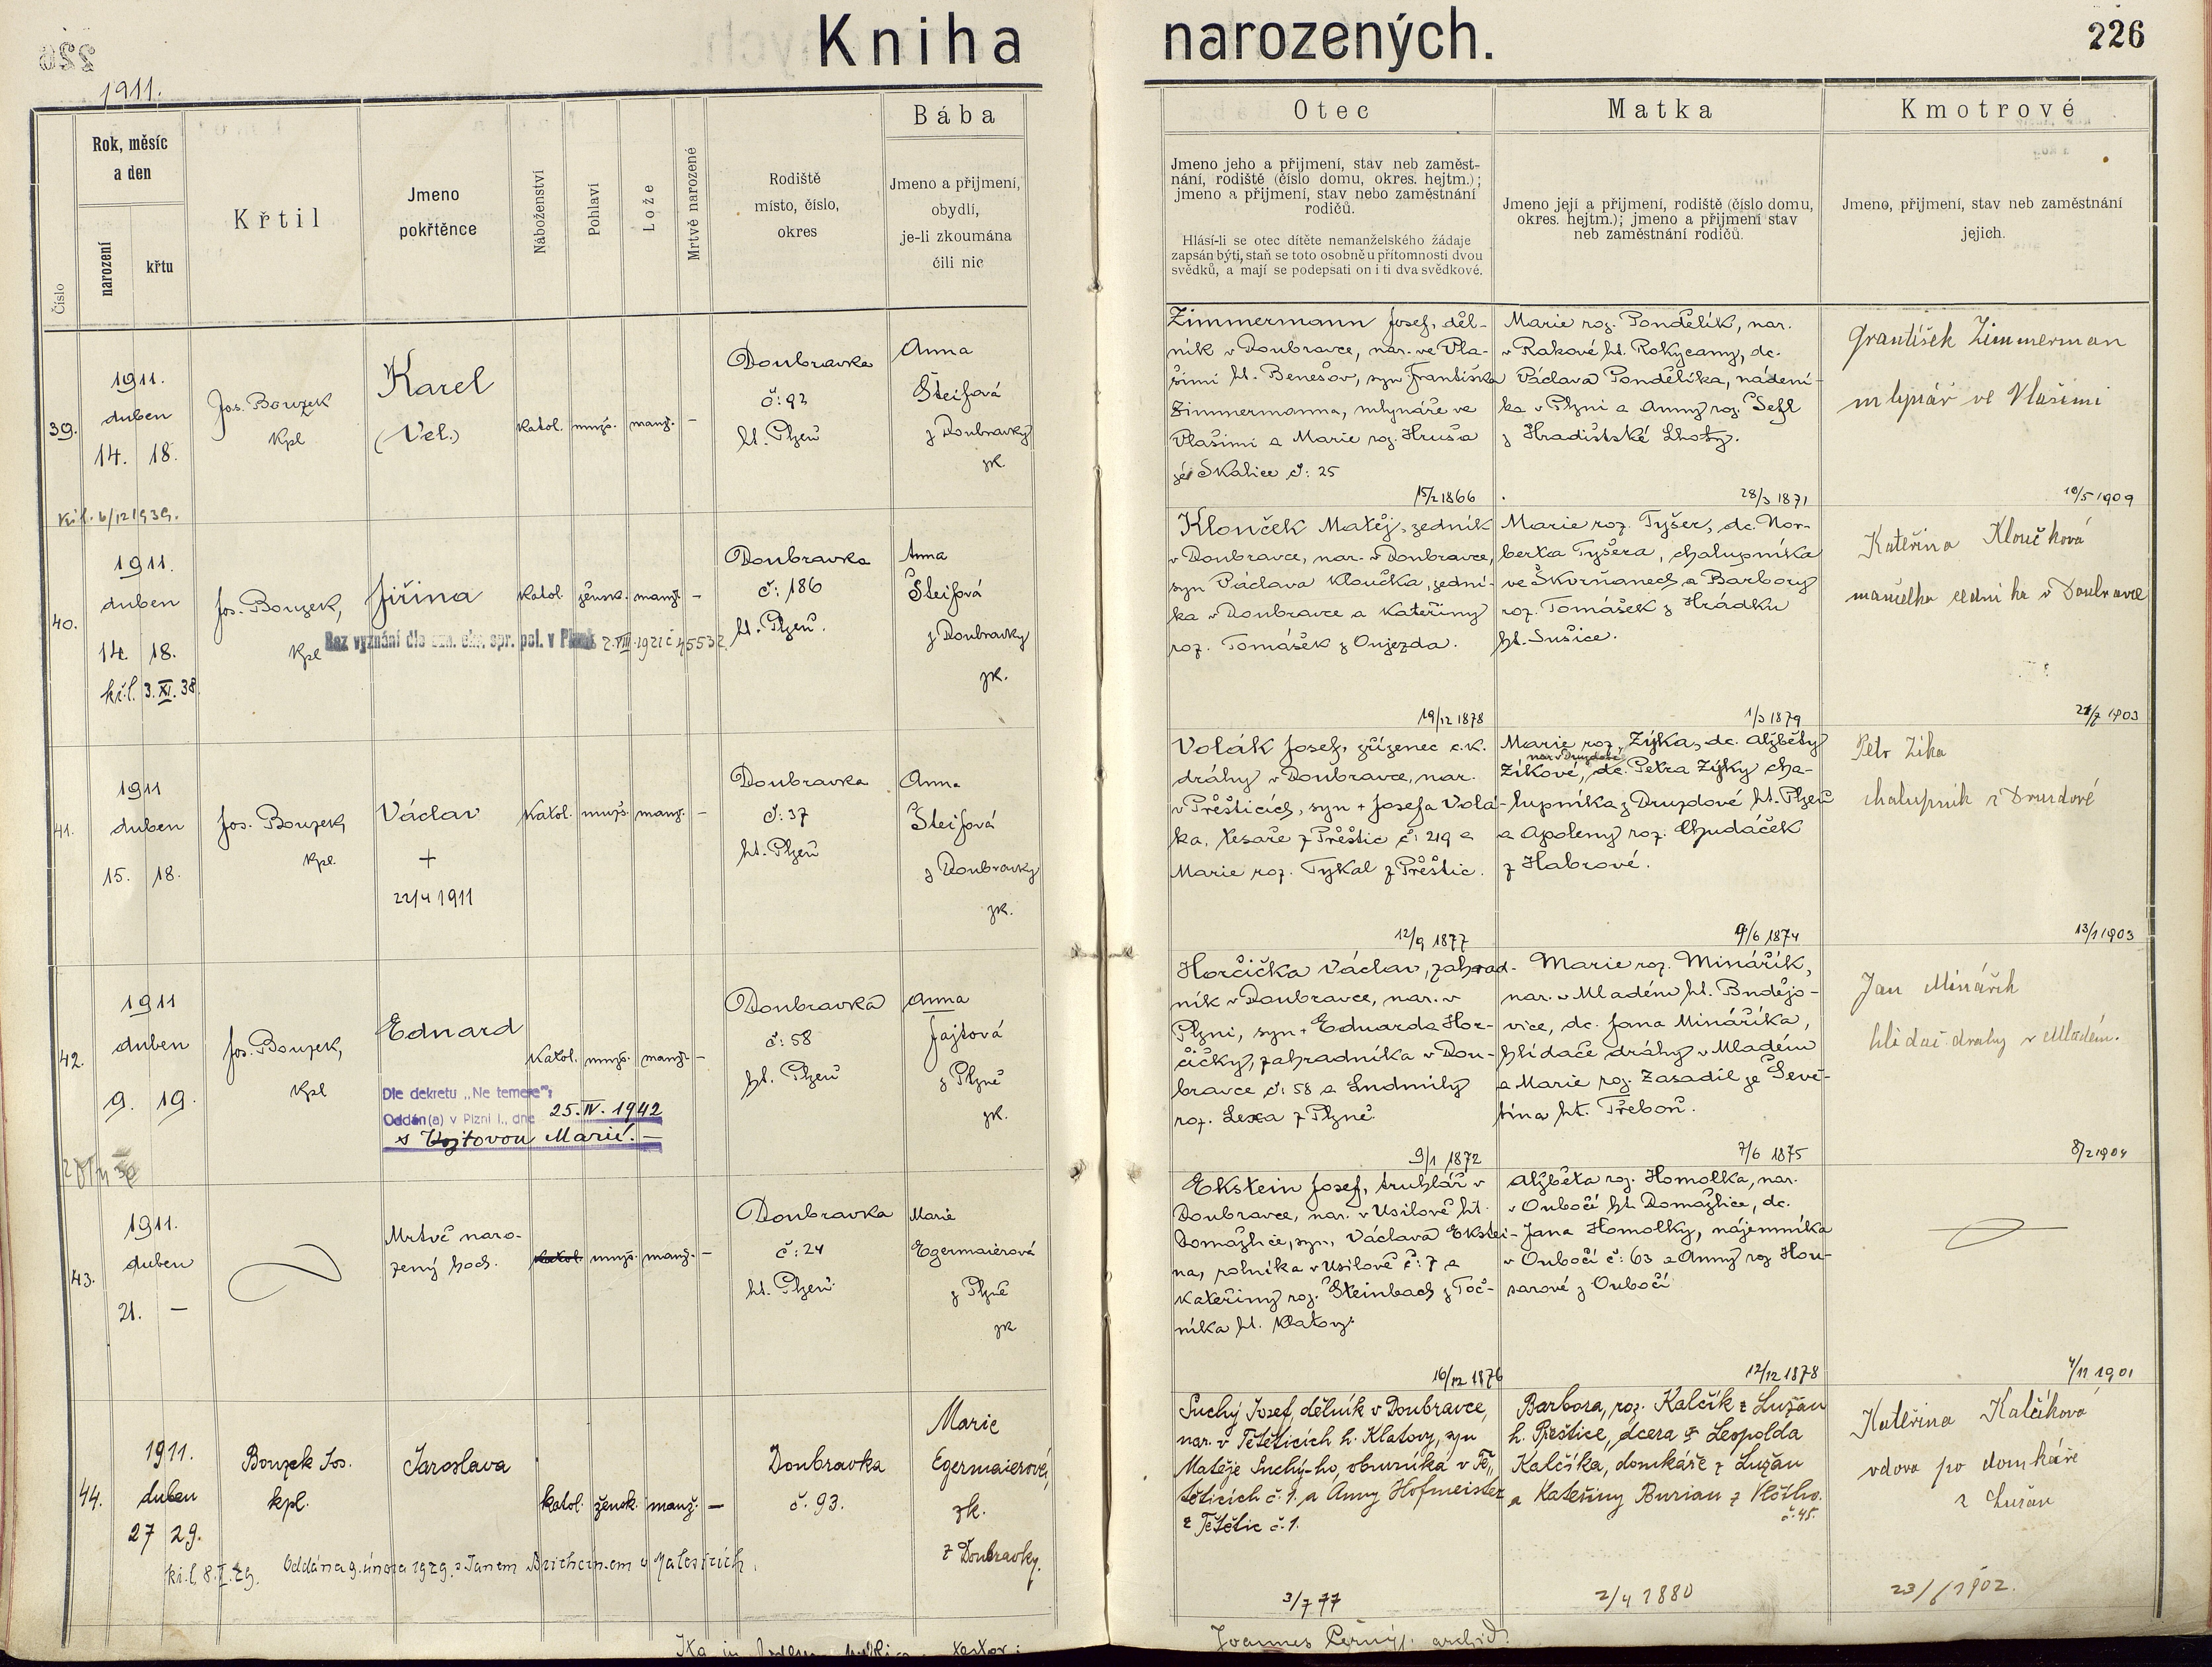 Kniha narozených.
226
1911.
Číslo
Rok, měsíc
a den
narození
křtu
Křtil
Jmeno
pokřtěnce
Náboženství
Pohlaví
Lože
Mrtvě narozené
Rodiště
místo, číslo,
okres
Bába
Jmeno a přijmení,
obydlí,
je-li zkoumána
čili nic
Otec
Jmeno jeho a přijmení, stav neb zaměst-
nání, rodiště (číslo domu, okres. hejtm.);
jmeno a přijmení, stav nebo zaměstnání
rodičů.
Hlásí-li se otec dítěte nemanželského žádaje
zapsán býti, staň se toto osobně u přítomnosti dvou
svědků, a mají se podepsati on i ti dva svědkové.
Matka
Jmeno její a přijmení, rodiště (číslo domu,
okres. hejtm.); jmeno a přijmení stav
neb zaměstnání rodičů.
Kmotrové
Jmeno, přijmení, stav neb zaměstnání
jejich.
39.
1911.
duben
14. 18.
Jos. Bouzek
Kpl
Karel
(Vel.)
katol. mužs. manž. –
Doubravka
č: 92
ht. Plzeň
Anna
Šteifová
z Doubravky
zk.
Zimmermann Josef, děl-
ník v Doubravce, nar. ve Vla-
šimi ht. Benešov, syn Františka
Zimmermanna, mlynáře ve
Vlašimi a Marie roz. Hruša
ze Skalice č: 25
15/2 1866
Marie roz. Pondělík, nar.
v Rakové ht. Rokycany, dc.
Václava Pondělíka, nádení-
ka v Plzni a Anny roz. Šefl
z Hradištské Lhoty.
28/3 1871
František Zimmerman
mlynář ve Vlašimi
10/5 1909
40.
1911.
duben
14. 18.
kř.l. 3.XI.38.
Jos. Bouzek,
Kpl
Jiřina
Bez vyznání dle ozn. okr. spr. pol. v Plzni 2.VIII.1921 č 45532
katol. žensk. manž. –
Doubravka
č: 186
ht. Plzeň.
Anna
Šteifová
z Doubravky
zk.
Klouček Matěj, zedník
v Doubravce, nar. v Doubravce,
syn Václava Kloučka, zední-
ka v Doubravce a Kateřiny
roz. Tomášek z Oujezda.
19/12 1878
Marie roz. Tyšer, dc. Nor-
berta Tyšera, chalupníka
ve Škvrňanech a Barbory
roz. Tomášek z Hrádku
ht. Sušice.
1/3 1879
Kateřina Kloučková
manželka zedníka v Doubravce
21/7 1903
41.
1911
duben
15. 18.
Jos. Bouzek,
Kpl.
Václav
+
22/4 1911
katol. mužs. manž. –
Doubravka
č: 37
ht. Plzeň
Anna
Šteifová
z Doubravky
zk.
Volák Josef, zřízenec c.k.
dráhy v Doubravce, nar.
v Přešticích, syn + Josefa Volá-
ka, tesaře z Přeštic č: 219 a
Marie roz. Tykal z Přeštic.
12/9 1877
Marie roz. Zýka, dc. Alžběty
Zíkové, dc. Petra Zýky cha-
lupníka z Druzdové ht. Plzeň
a Apoleny roz. Chudáček
z Habrové.
9/6 1874
Petr Zíka
chalupník z Druzdové
13/1 1903
42.
1911
duben
9. 19.
Jos. Bouzek,
Kpl
Eduard
Dle dekretu „Ne temere“:
Oddán(a) v Plzni I., dne 25.IV.1942
s Vojtovou Marií. –
katol. mužs. manž. –
Doubravka
č: 58
ht. Plzeň
Anna
Fajtová
z Plzně
zk.
Horčička Václav, zahrad-
ník v Doubravce, nar. v
Plzni, syn + Eduarda Hor-
čičky, zahradníka v Dou-
bravce č: 58 a Ludmily
roz. Lexa z Plzně.
9/1 1872
Marie roz. Minářík,
nar. v Mladém ht. Budějo-
vice, dc. Jana Mináříka,
hlídače dráhy v Mladém
a Marie roz. Zasadil ze Ševě-
tína ht. Třeboň.
7/6 1875
Jan Minářík
hlídač dráhy v Mladém.
8/2 1904
43.
1911.
duben
21. –
Mrtvě naro-
zený hoch.
katol. mužs. manž. –
Doubravka
č: 24
ht. Plzeň
Marie
Egermaierová
z Plzně
zk
Ekstein Josef, truhlář v
Doubravce, nar. v Úsilově ht.
Domažlice, syn, Václava Ekstei-
na, rolníka v Úsilově č: 7 a
Kateřiny roz. Steinbach z Toč-
níka ht. Klatovy.
16/12 1876
Alžběta roz. Homolka, nar.
v Oubočí ht. Domažlice, dc.
Jana Homolky, nájemníka
v Oubočí č: 63 a Anny roz Hou-
sarové z Oubočí
12/12 1878
4/11 1901
44.
1911.
duben
27 29.
Bouzek Jos.
kpl.
Jaroslava
katol. žensk. manž. –
Doubravka
č. 93.
Marie
Egermaierová,
zk.
z Doubravky.
Oddána 9. února 1929 s Janem v Malesicích.
Suchý Josef, dělník v Doubravce,
nar. v Tětěticích h. Klatovy, syn
Matěje Suchý-ho, obuvníka v Tě-
těticích č. 1. a Anny Hofmeister
z Tětětic č. 1.
3/7 77
Barbora, roz. Kalčík z Lužan
h. Přeštice, dcera + Leopolda
Kalčíka, domkáře z Lužan
a Kateřiny Burian z
č. 45.
2/4 1880
Kateřina Kalčíková
vdova po domkáři
z Lužan
23/6 1902.
Joannes Černý archid.